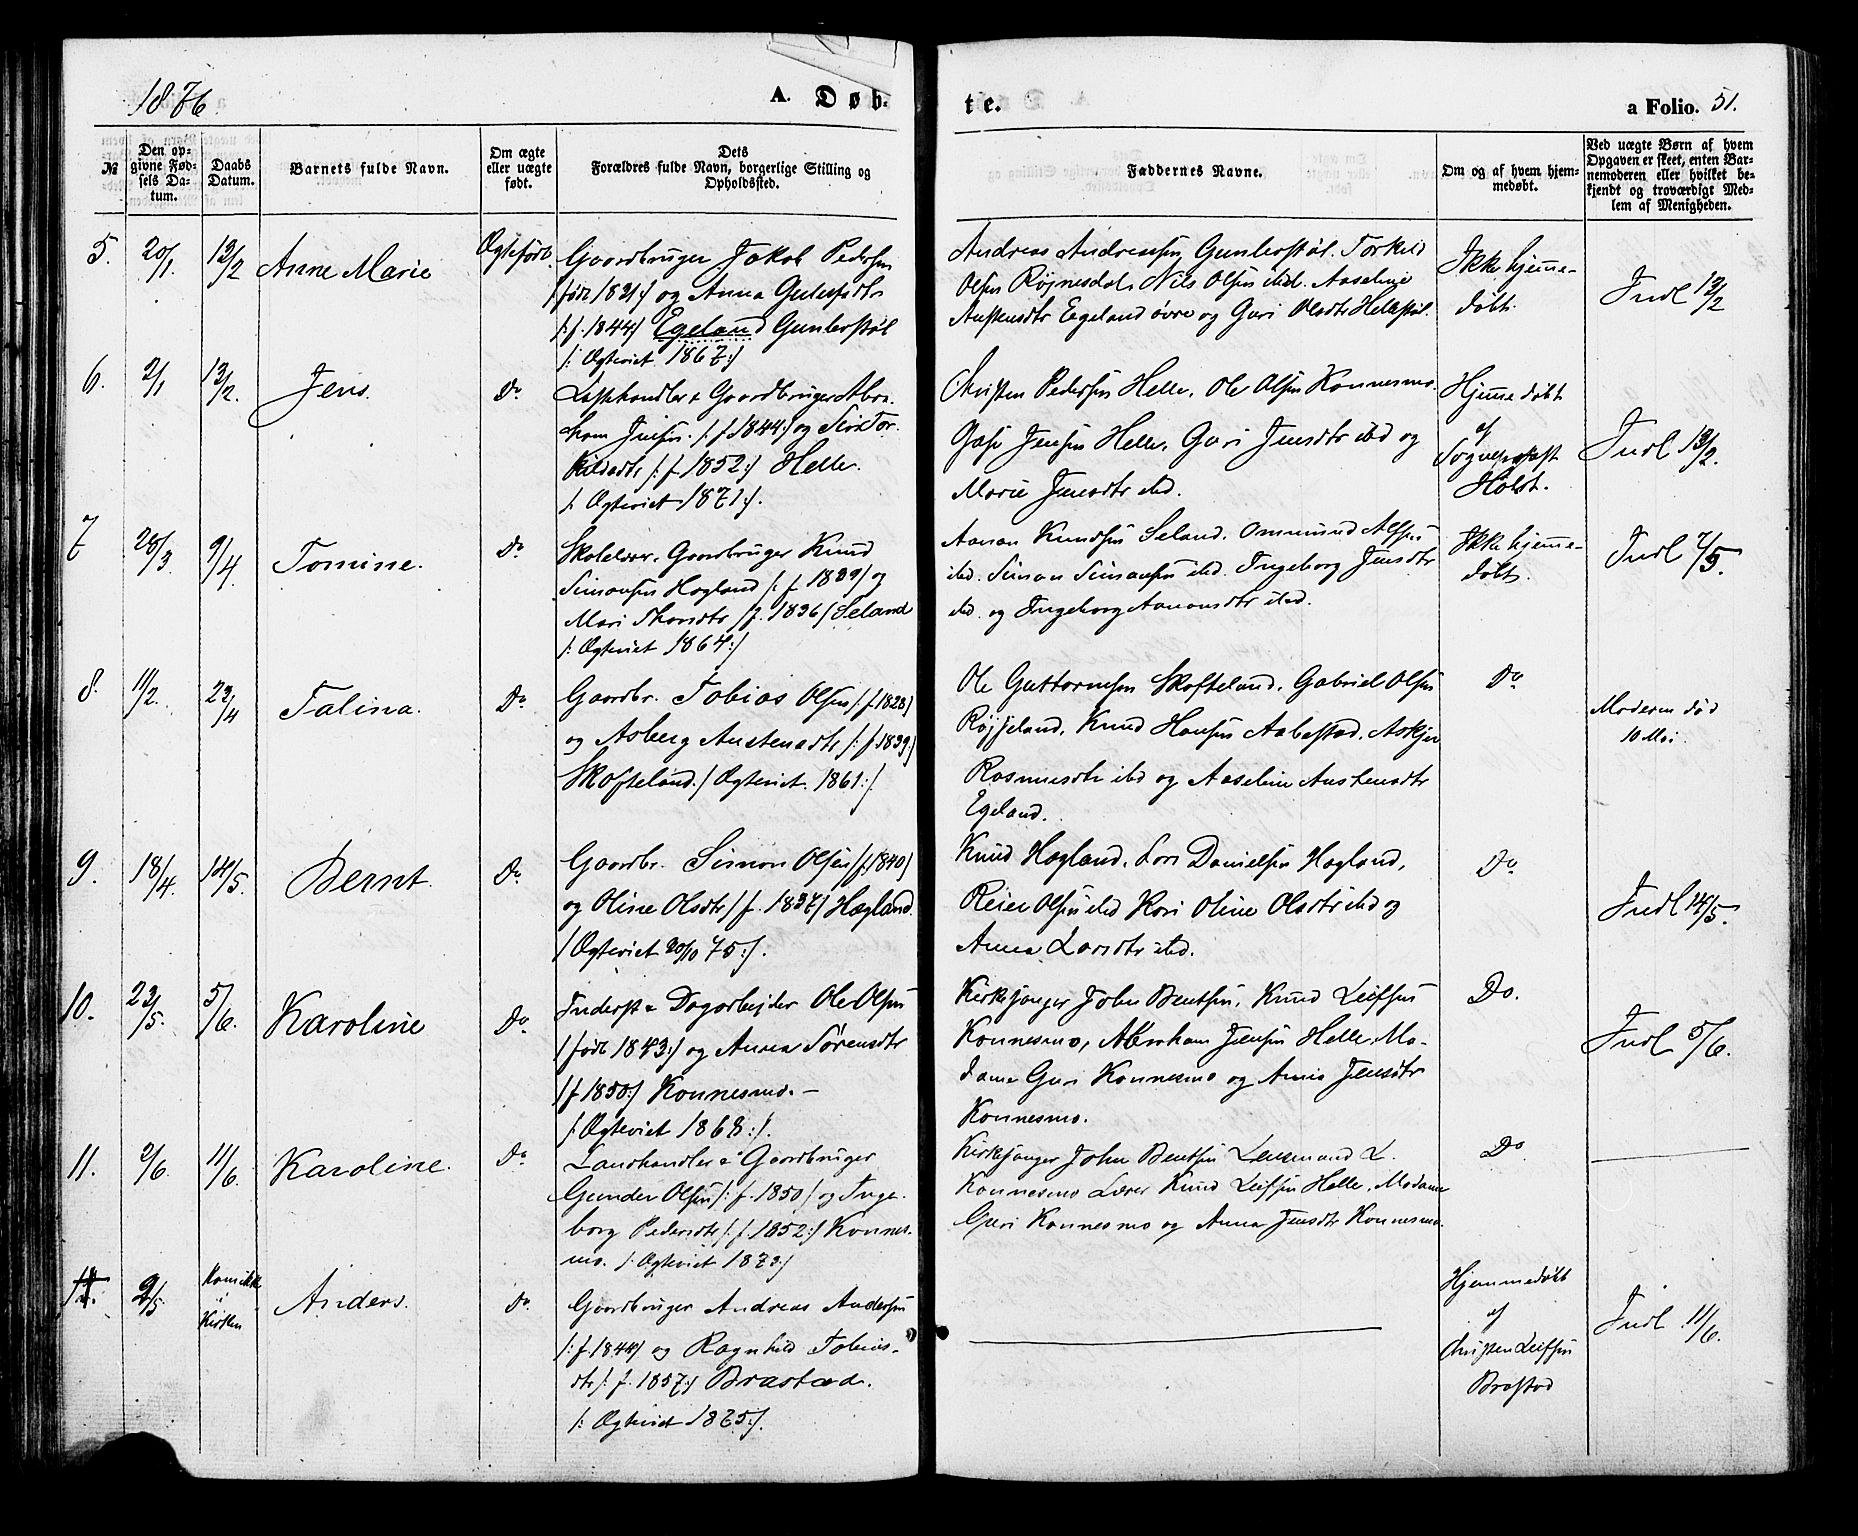 1876.
A. Døb-
te.
a Folio. 51.
№
Den op-
givne Fød-
sels Da-
tum.
Daabs
Datum.
Barnets fulde Navn.
Om ægte
eller uægte
født.
Dets
Forældres fulde Navn, borgerlige Stilling og
Opholdssted.
Faddernes Navne.
Om og af hvem hjem-
medøbt.
Ved uægte Børn af hvem
Opgaven er skeet, enten Bar-
nemoderen eller hvilket be-
kjendt og troværdigt Med-
lem af Menigheden.
5.
20/1.
13/2
Anne Marie
Ægtefødt.
Gaardbruger Jakob Pedersen
/: født 1821:/ og Anna Gulefsdtr
/: f. 1844/ Egeland Gunlerstøl
/: Ægteviet 1867:/
Andreas Andreassen Gunlerstøl. Torkild
Olsen Røjnesdal. Nils Olsen ibd. Aaseline
Austensdtr Egeland øvre og Guri Olsdtr Hellestøl.
Ikke hjemme-
døbt.
Indl 13/2
6.
2/1
13/2.
Jens.
Do
Lasthandler & Gaardbruger Abra-
ham Jensen /: f 1844:/ og Siri Tor-
kildsdtr /: f. 1852:/ Helle.
/: Ægteviet 1871:/.
Christen Pedersen Helle, Ole Olsen Konnesmo.
Jens Jensen Helle, Guri Jensdtr ibd og
Marie Jensdtr ibd.
Hjemmedøbt
af
Sognepræst
Holst.
Indl 13/2.
7
28/3.
9/4.
Tomine.
Do
Skolelærer, Gaardbruger Knud
Simonsen Hogland /: f. 1839/ og
Mari Thorsdtr /f. 1836/ Seland
/: Ægteviet 1864:/
Aanon Knudsen Seland. Ommund Alfsen
ibd. Simon Simonsen ibd. Ingeborg Jensdtr
ibd. og Ingeborg Aanonsdtr ibd.
Ikke hjemme-
døbt.
Indl 7/5.
8.
11/2.
23/4
Talina.
Do
Gaardbr. Tobias Olsen /: f. 1828/
og Asberg Austensdtr /: f. 1839:/
Skofteland. / Ægteviet. 1861:/.
Ole Guttormsen Skofteland, Gabriel Olsen
Røjseland, Knud Hansen Aabestad, Askjer
Rasmusdtr ibd og Aaseline Austensdtr
Egeland.
Do
Moderen død
10 Mai.
9.
18/4.
14/5.
Bernt.
Do
Gaardbr. Simon Olsen /f. 1840/
og Oline Olsdtr /f. 1837/ Hogland
/ Ægteviet 20/10 75:/.
Knud Hogland, Lars Danielsen Hogland,
Reier Olsen ibd Kari Oline Olsdtr ibd og
Anna Larsdtr ibd.
Do
Indl 14/5.
10.
23/5.
5/6.
Karoline
Do
Inderst & Dagarbejder Ole Olsen
/ født 1843:/ og Anna Sørensdtr
/f 1850:/ Konnesmo. -
/: Ægteviet 1868:/.
Kirkesanger John Bentsen, Knud Leifsen
Konnesmo, Abraham Jensen Helle, Ma-
dame Guri Konnesmo og Anna Jensdtr
Konnesmo.
Do.
Indl 5/6.
11.
2/6.
11/6.
Karoline.
Do
Landhandler & Gaardbruger
Gunder Olsen /: f. 1850/ og Inge-
borg Pedersdtr /: f. 1852:/ Konnes-
mo. /: Ægteviet 1873:/
Kirkesanger John Bentsen Lensmand L.
Konnesmo Lærer Knud Leifsen Helle, Madame
Guri Konnesmo og Anna Jensdtr Konnesmo.
Do
2/5.
Kom ikke
i
Kirken
Anders.
Do.
Gaardbruger Andreas Andersen
/: f. 1844/ og Ragnhild Tobias-
dtr /: f. 1857:/ Brastad.
/: Ægteviet 1875:/.
Hjemmedøbt
af
Christen Leifsen
Brastad
Indl 11/6.